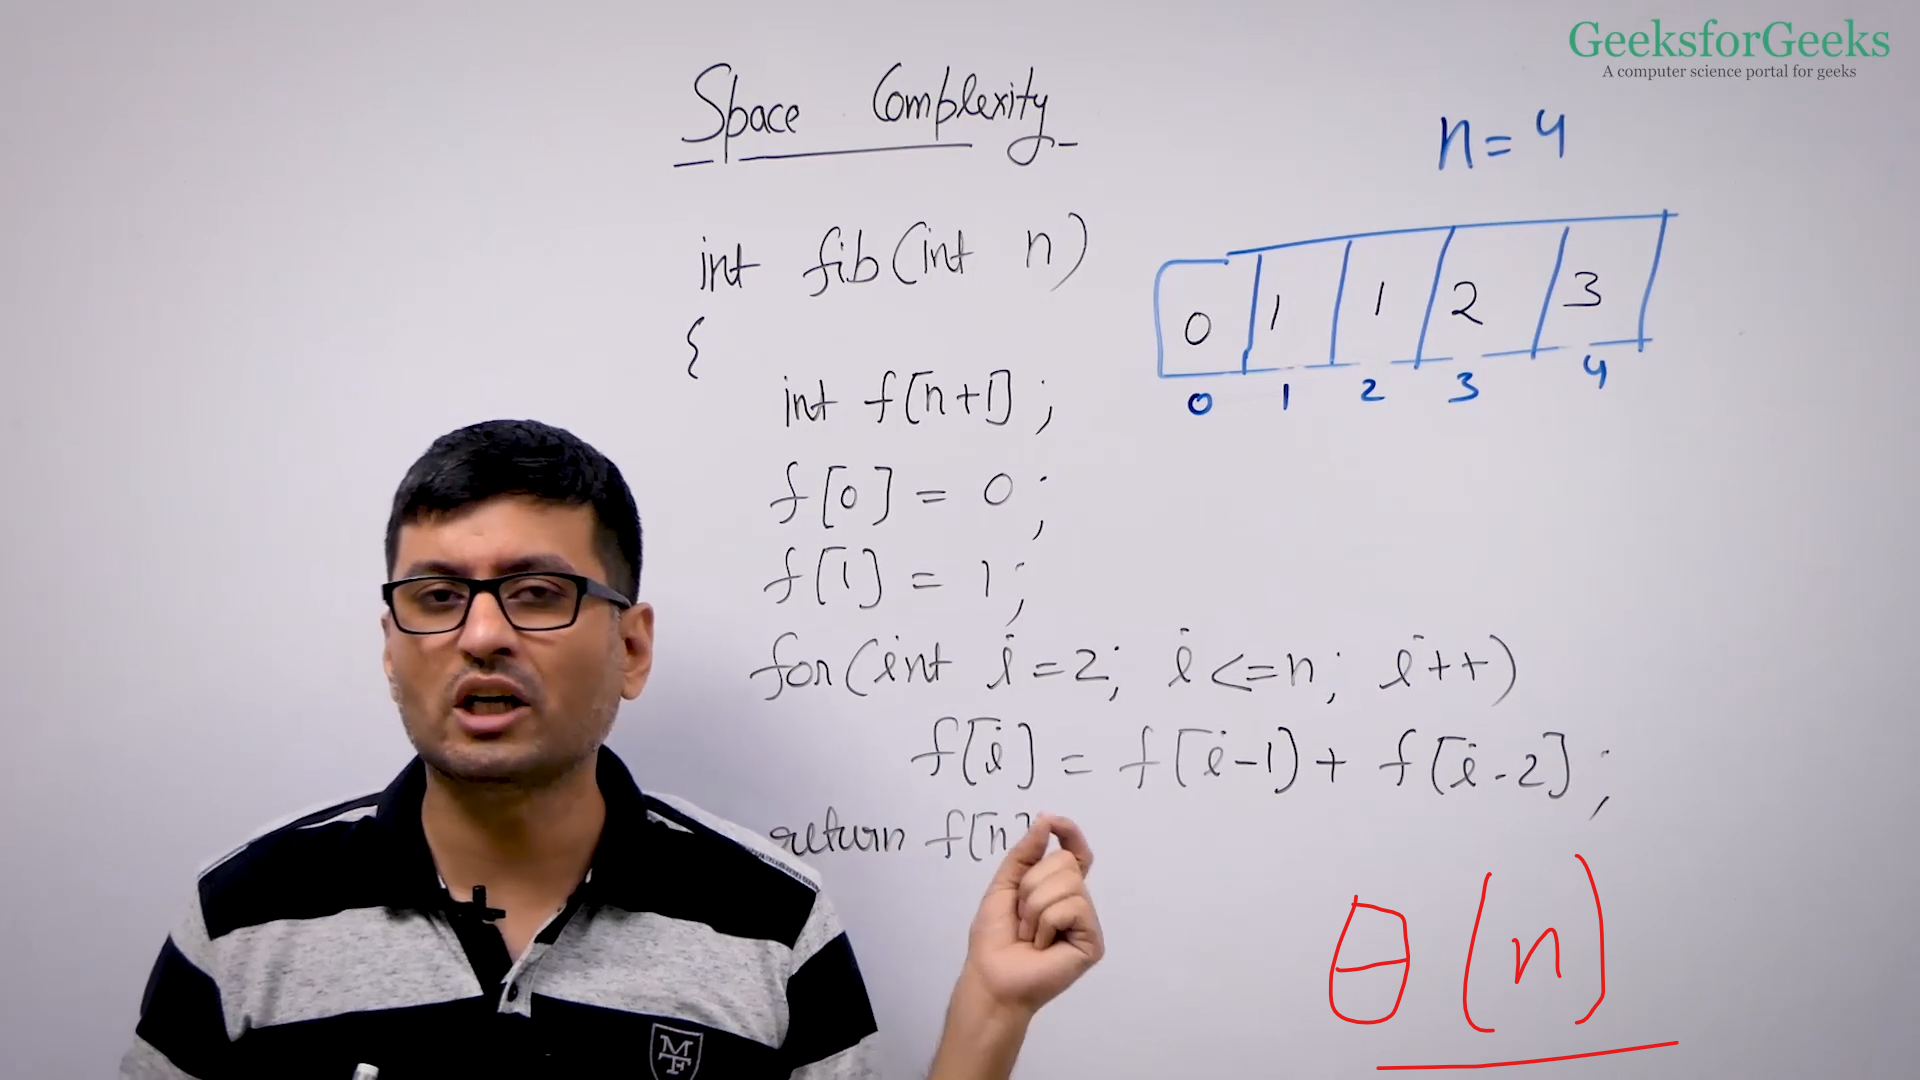 GeeksforGeeks
A computer science portal for geeks
Space Complexity
n = 4
int fib(int n)
{
0 1 1 2 3
0 1 2 3 4
int f[n+1];
f[0] = 0;
f[1] = 1;
for(int i=2; i<=n; i++)
f[i] = f[i-1) + f[i-2];
return f[n]
θ (n)
MTF